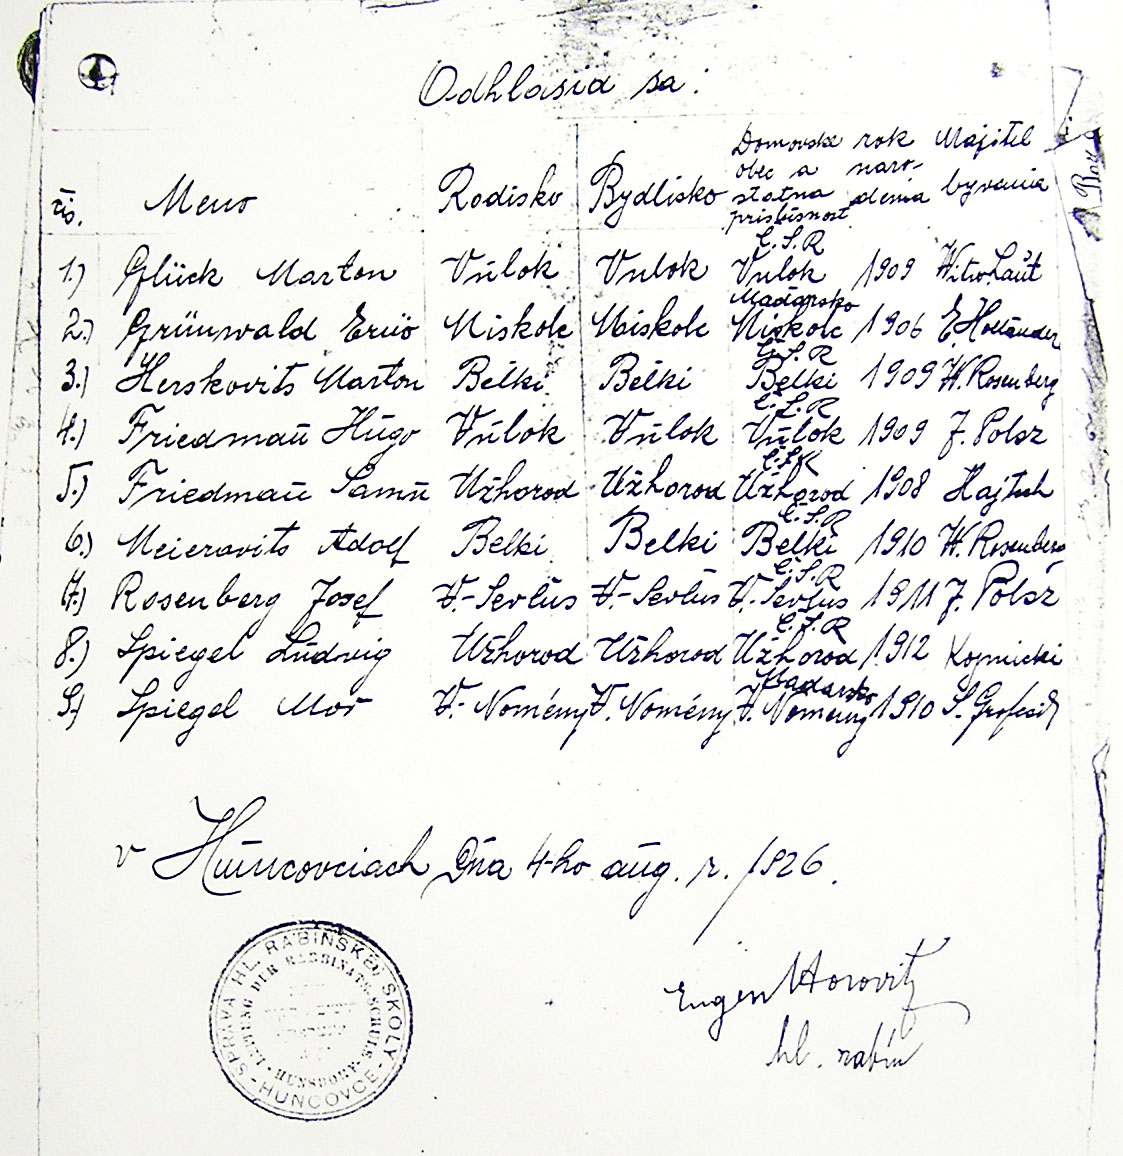 Odhlasia sa:
čis. Meno Rodisko Bydlisko Domovská obec a statna prisbisnost rok narodenia Majitel byvania
1.) Glück Marton Vúlok Vulok Č.S.R Vulok 1909 Witw. Laút
2.) Grünwald Ernö Miskolc Miskolc Maďarsko Miskolc 1906 E. Hollander
3.) Herskovits Marton Belki Belki Č.S.R Belki 1909 W. Rosenberg
4.) Friedman Hugo Vúlok Vúlok Č.S.R Vúlok 1909 J. Polsz
5.) Friedman Samu Užhorod Užhorod Č.S.R Užhorod 1908 Hajtsch
6.) Meieravits Adolf Belki Belki Č.S.R Belki 1910 W. Rosenberg
7.) Rosenberg Josef V.-Sevluš V.-Sevluš Č.S.R V.-Sevluš 1911 J. Polsz
8.) Spiegel Ludvig Užhorod Užhorod Č.S.R Užhorod 1912 Kojnicki
9.) Spiegel Mor V. Namény V. Namény Maďarsko V. Namény 1910
v Huncovciach Dňa 4-ho aug. r. 1926.
SPRÁVA HL. RABÍNSKEJ ŠKOLY - HUNCOVCE -
LEITUNG DER RABBINATS-SCHULE - HUNSDORF -
Eugen Horovitz
hl. rabín